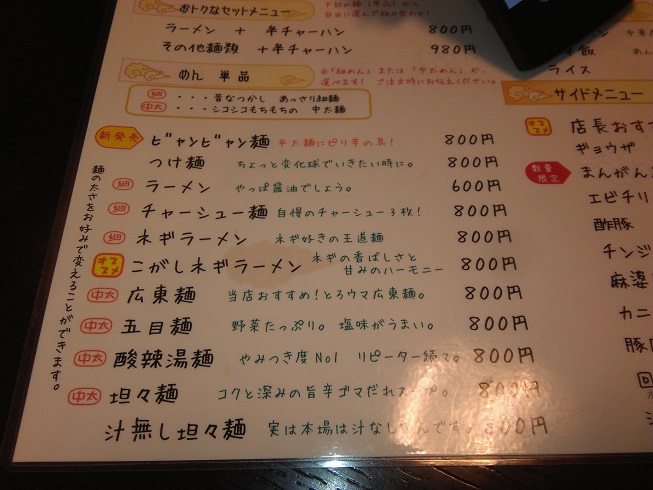 おトクなセットメニュー
自由に選んで組み合わせ!
ラーメン + 半チャーハン 800円
その他麺類 + 半チャーハン 980円
めん 単品
選べます! ご注文時にお伝えください。
細 ・・・昔なつかし あっさり細麺
中太 ・・・シコシコもちもちの 中太麺
麺の太さをお好みで変えることができます。
新発売 ビャンビャン麺 平太麺にピリ辛の具! 800円
つけ麺 ちょっと変化球でいきたい時に。 800円
細 ラーメン やっぱ醤油でしょう。 600円
細 チャーシュー麺 自慢のチャーシュー3枚! 800円
細 ネギラーメン ネギ好きの王道麺 800円
オススメ こがしネギラーメン ネギの香ばしさと
甘みのハーモニー 800円
中太 広東麺 当店おすすめ!とろウマ広東麺。 800円
中太 五目麺 野菜たっぷり。 塩味がうまい。 800円
中太 酸辣湯麺 やみつき度No1 リピーター続々。 800円
中太 坦々麺 コクと深みの旨辛ゴマだれスープ。 800円
汁無し坦々麺 実は本場は汁なし 800円
ライス
サイドメニュー
オススメ 店長おす
ギョウザ
数量限定 まんがん
エビチリ
酢豚
チンジ
麻婆
カニ
豚
回